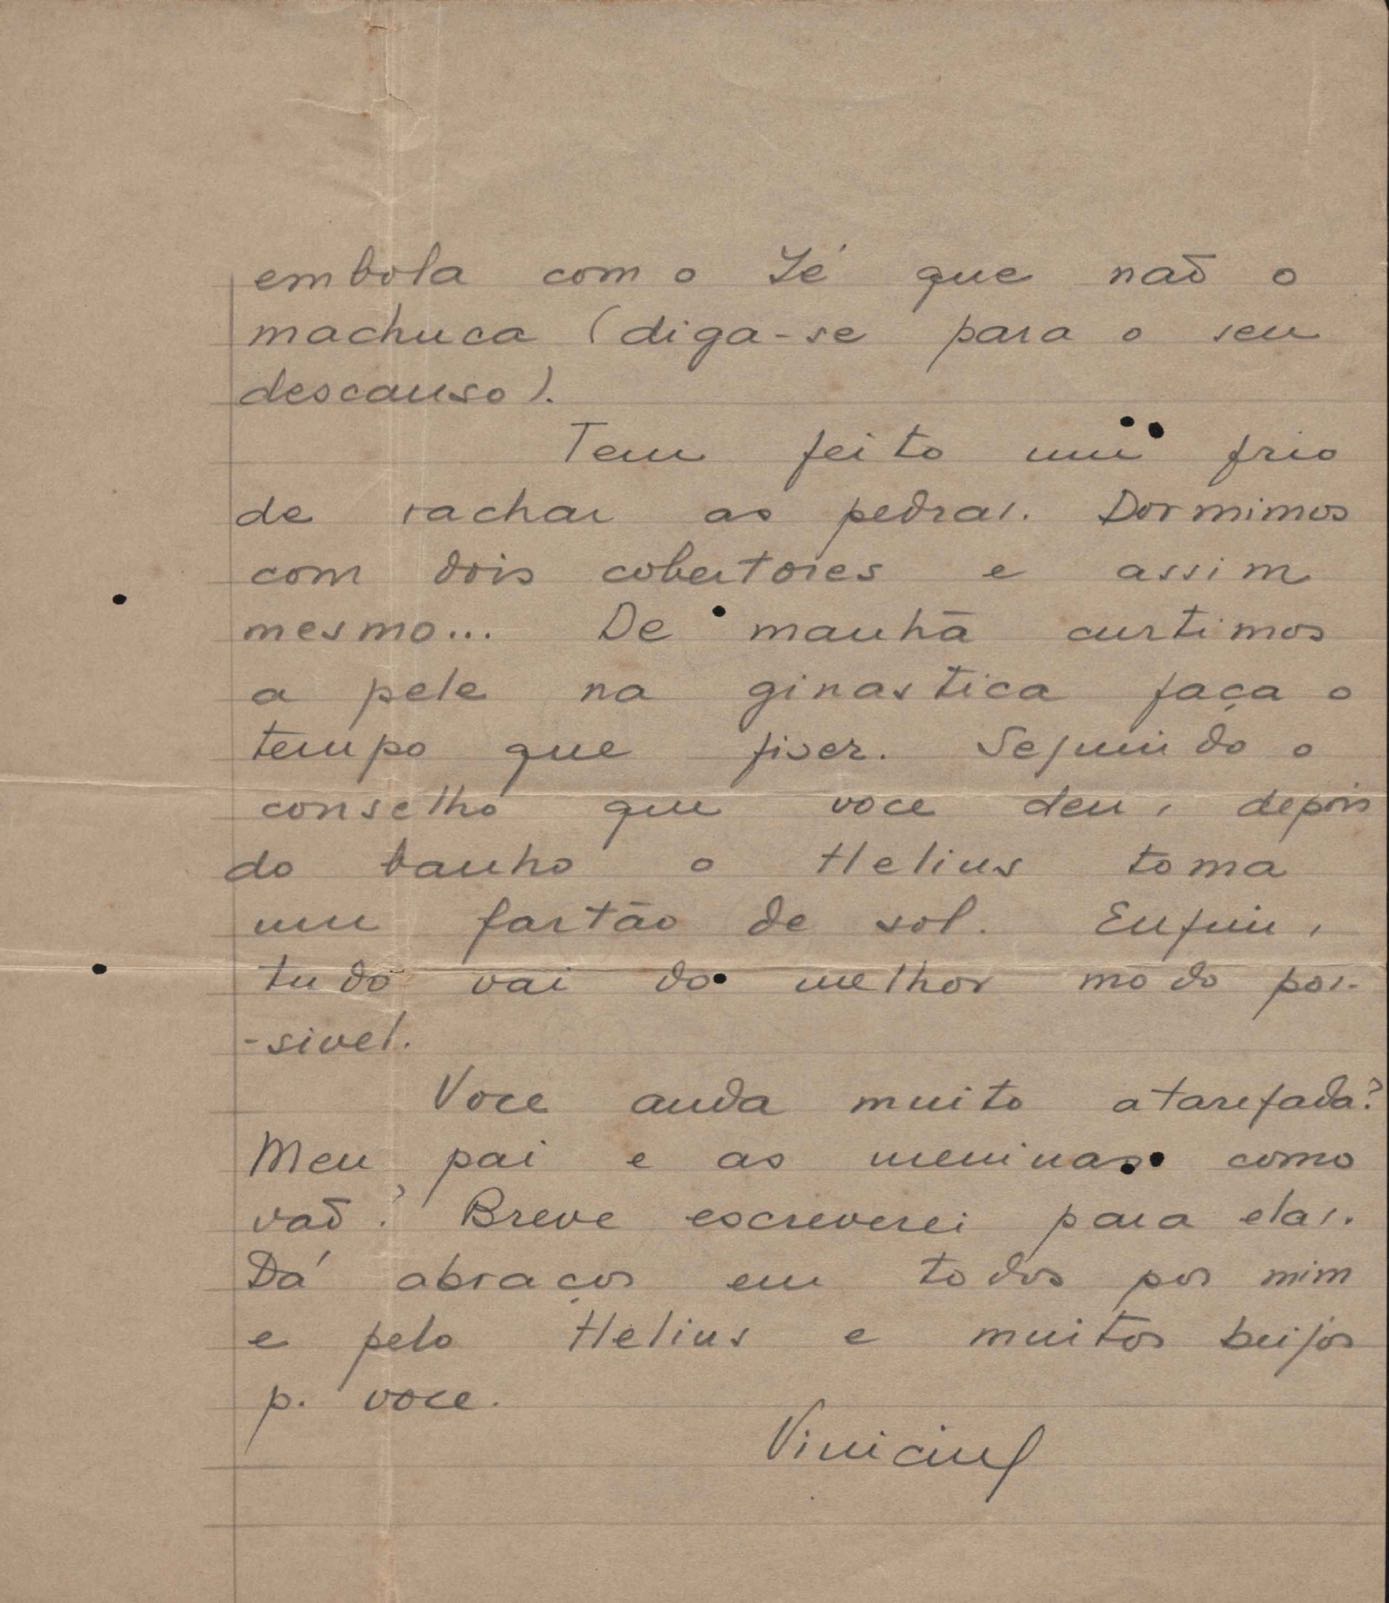 embola com o Zé que não o
machuca (diga-se para o seu
descanso).
Tem feito um frio
de rachar as pedras. Dormimos
com dois cobertores e assim
mesmo... De manhã curtimos
a pele na ginastica faça o
tempo que fizer. Seguindo o
conselho que voce deu, depois
do banho o Helius toma
um fartão de sol. Enfim,
tudo vai do melhor modo pos-
-sivel.
Voce anda muito atarefada?
Meu pai e as meninas como
vão? Breve escreverei para elas.
Dá abraços em todos por mim
e pelo Helius e muitos beijos
p. voce.
Vinicius